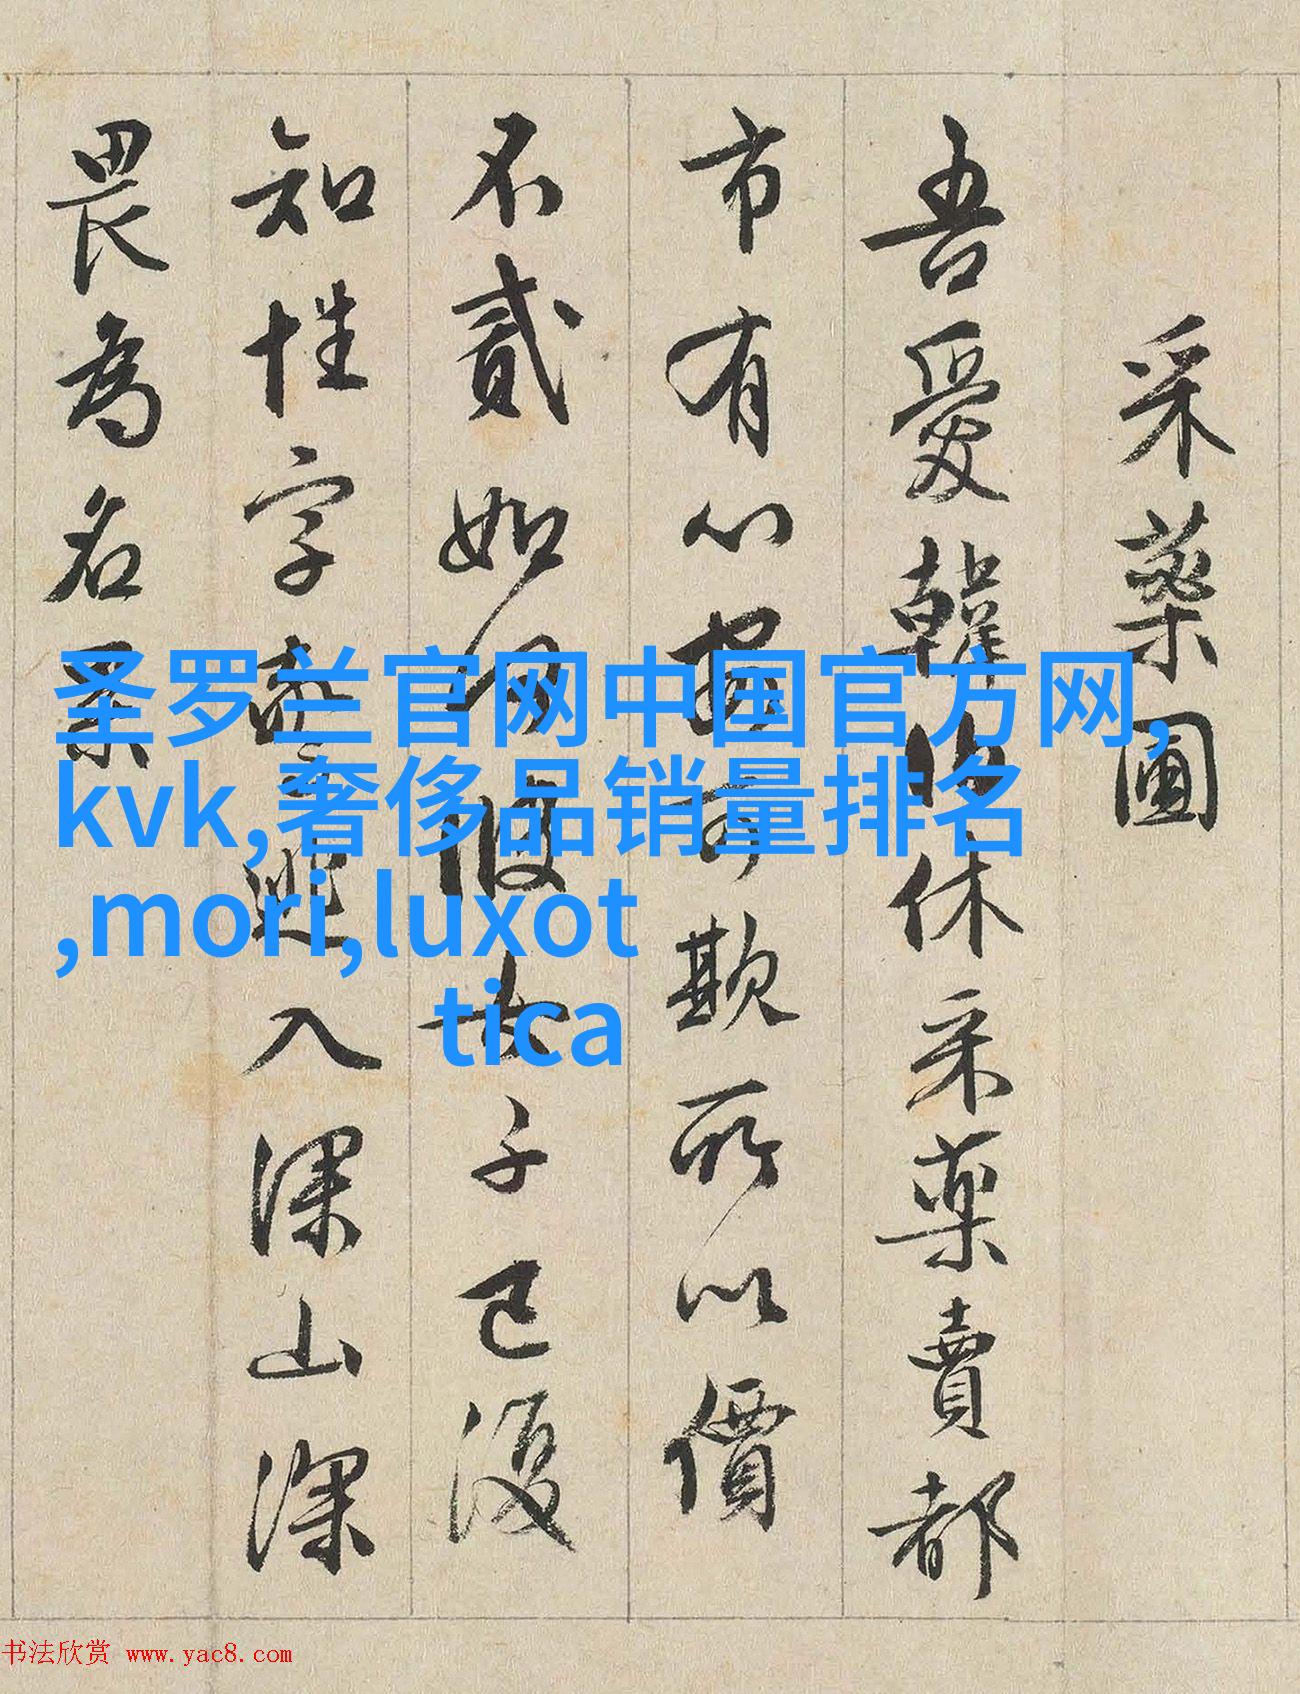 采藥圃
吾愛韓伯休采藥賣都
市有心可欺所以價
不貳如何彼女子已復
知姓字入深山深
畏為名累
圣罗兰官网中国官方网,
kvk,奢侈品销量排名
,mori,luxot
tica
书法欣赏 www.yac8.com